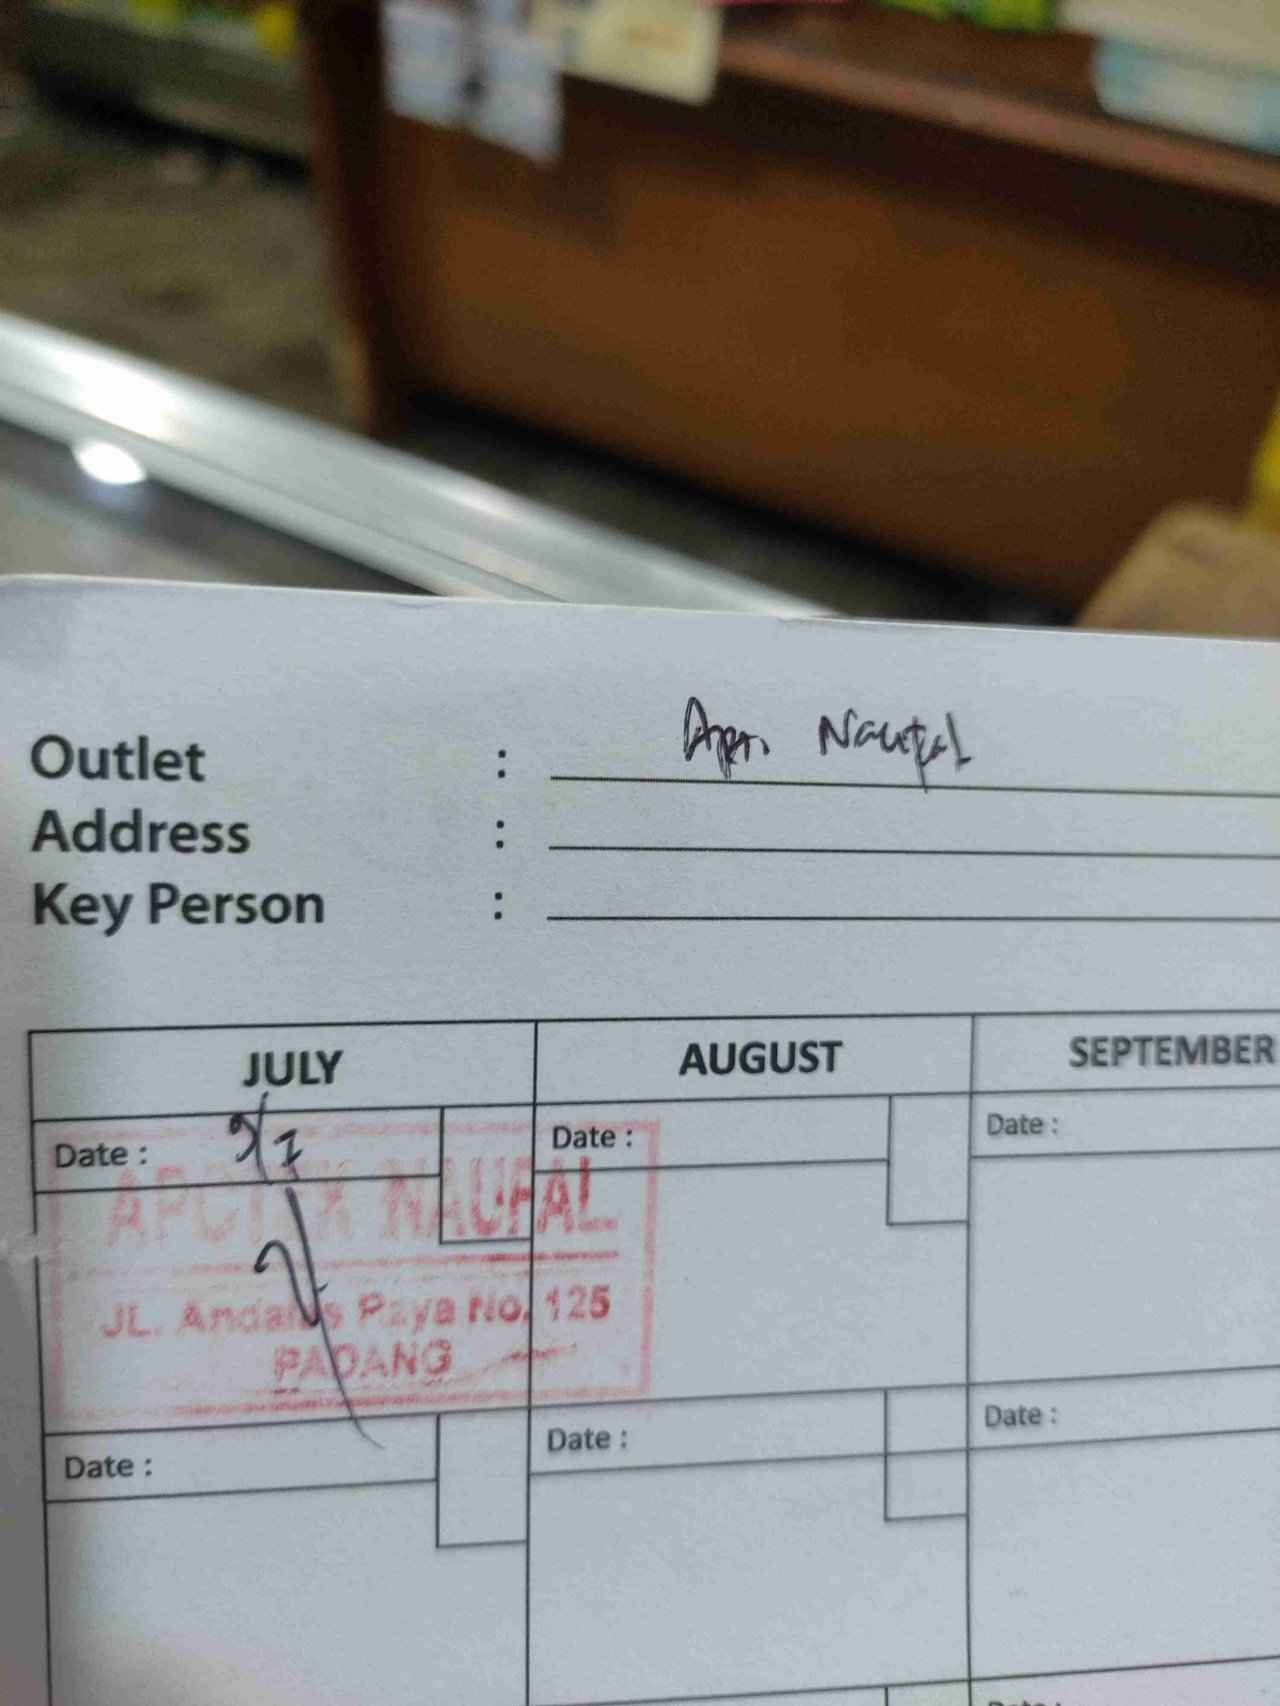 Outlet : Apt. Naufal
Address :
Key Person :
JULY AUGUST SEPTEMBER
Date : Date : Date :
APOTEK NAUFAL
JL. Andalas Raya No. 125
PADANG
Date : Date : Date :
Date :